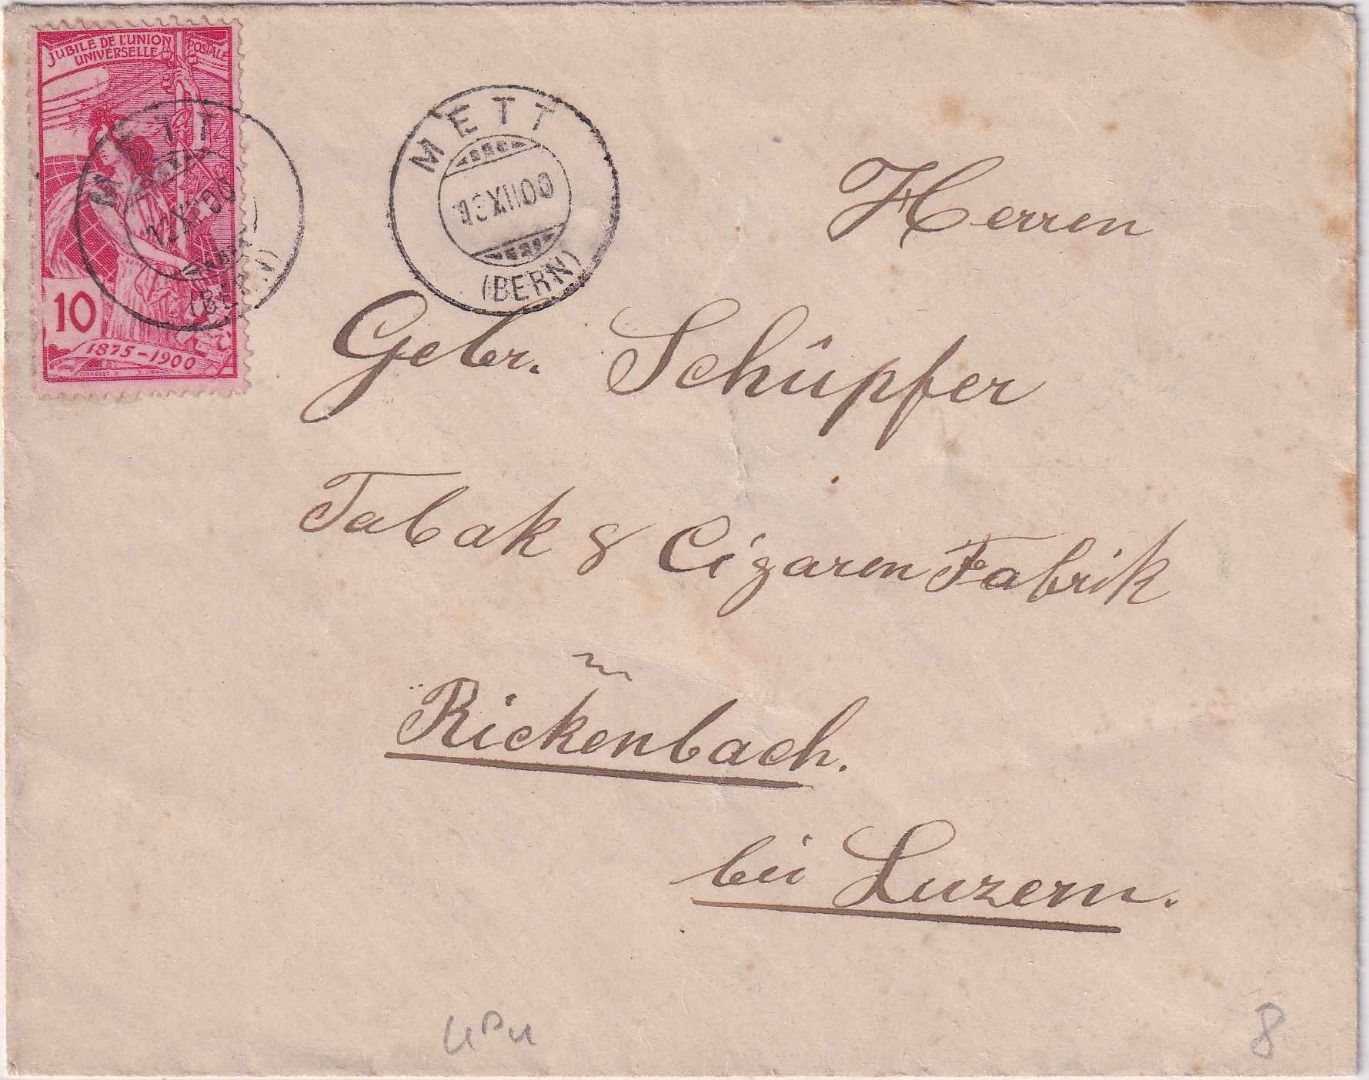 JUBILÉ DE L'UNION
POSTALE
UNIVERSELLE
10
1875-1900
METT
(BERN)
METT
XII 00
(BERN)
Herren
Gebr. Schüpfer
Tabak & Cigaren Fabrik
in
Rickenbach.
bei Luzern.
UPU
8